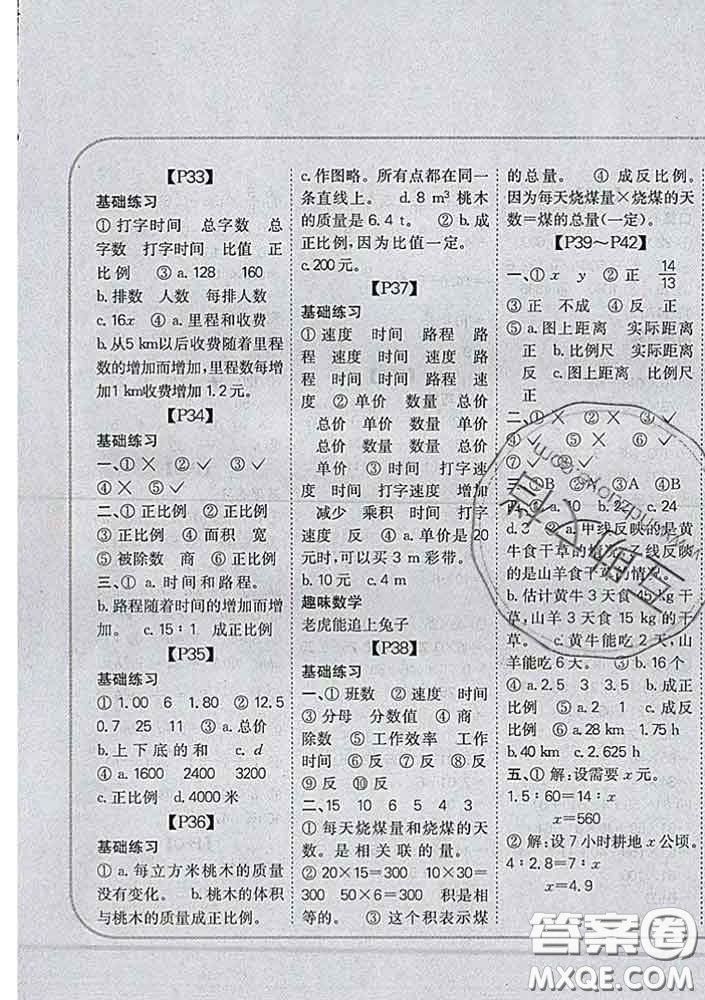 【P33】
基础练习
① 打字时间 总字数 总
字数 打字时间 比值 正
比例 ③ a. 128 160
b. 排数 人数 每排人数
c. 16x ④ a. 里程和收费
b. 从5 km以后收费随着里程
数的增加而增加,里程数每增
加1 km收费增加1.2元。
【P34】
基础练习
一、① × ② ✓ ③ ✓
④ × ⑤ ✓
二、① 正比例 ② 正比例
③ 正比例 ④ 面积 宽
⑤ 被除数 商 ⑥ 正比例
三、① a. 时间和路程。
b. 路程随着时间的增加而增
加。 c. 15∶1 成正比例
【P35】
基础练习
① 1.00 6 1.80 ② 12.5
0.7 25 11 ③ a. 总价
b. 上下底的和 c. d
④ a. 1600 2400 3200
c. 正比例 d. 4000米
【P36】
基础练习
① a. 每立方米桃木的质量
没有变化。 b. 桃木的体积
与桃木的质量成正比例。
c. 作图略。所有点都在同一
条直线上。 d. 8 m³ 桃木
的质量是6.4 t。 ② b. 成
正比例,因为比值一定。
c. 200元。
【P37】
基础练习
① 速度 时间 路程 路
程 速度 时间 速度 路
程 时间 时间 路程 速
度 ② 单价 数量 总价
总价 单价 数量 单价
总价 数量 数量 总价
单价 ③ 时间 打字速度
增加 时间 打字速度 增加
减少 乘积 时间 打字
速度 反 ④ a. 单价是20
元时,可以买3 m彩带。
b. 10元 c. 4 m
趣味数学
老虎能追上兔子
【P38】
基础练习
一、① 班数 ② 速度 时间
③ 分母 分数值 ④ 商
除数 ⑤ 工作效率 工作
时间 ⑥ 反 ⑦ 反 ⑧ 反
⑨ 反 ⑩ 反
二、15 10 6 5 4 3
① 每天烧煤量和烧煤的天
数。是相关联的量。
② 20×15=300 10×30=
300 50×6=300 积是相
等的。 ③ 这个积表示煤
的总量。 ④ 成反比例。
因为每天烧煤量×烧煤的天
数=煤的总量(一定)。
【P39~P42】
一、① x y ② 正 14/13
③ 正 不成 ④ 反 正
⑤ a. 图上距离 实际距离
正 b. 比例尺 实际距离
反 c. 图上距离 比例尺
正
二、① × ② × ③ ✓
④ ✓ ⑤ × ⑥ ✓
⑦ ✓
三、① B ② B ③ A ④ B
a. 10 b. 22 c. 24
d. 3 ② a. 甲线反映的是黄
牛食干草的情况,乙线反映
的是山羊食干草的情况。
b. 估计黄牛3天食45 kg干
草,山羊3天食15 kg的干
草。 c. 黄牛能吃2天,山
羊能吃6天。 ③ b. 16个
④ a. 2.5 3 3.5 b. 成正
比例 ⑤ a. 1 2 c. 成反
比例 ⑥ a. 28 km 1.75 h
b. 40 km c. 2.625 h
五、① 解:设需要x元。
1.5∶60=14∶x
x=560
② 解:设7小时耕地x公顷。
4∶2.8=7∶x
x=4.9
答案圈
MXQE.COM